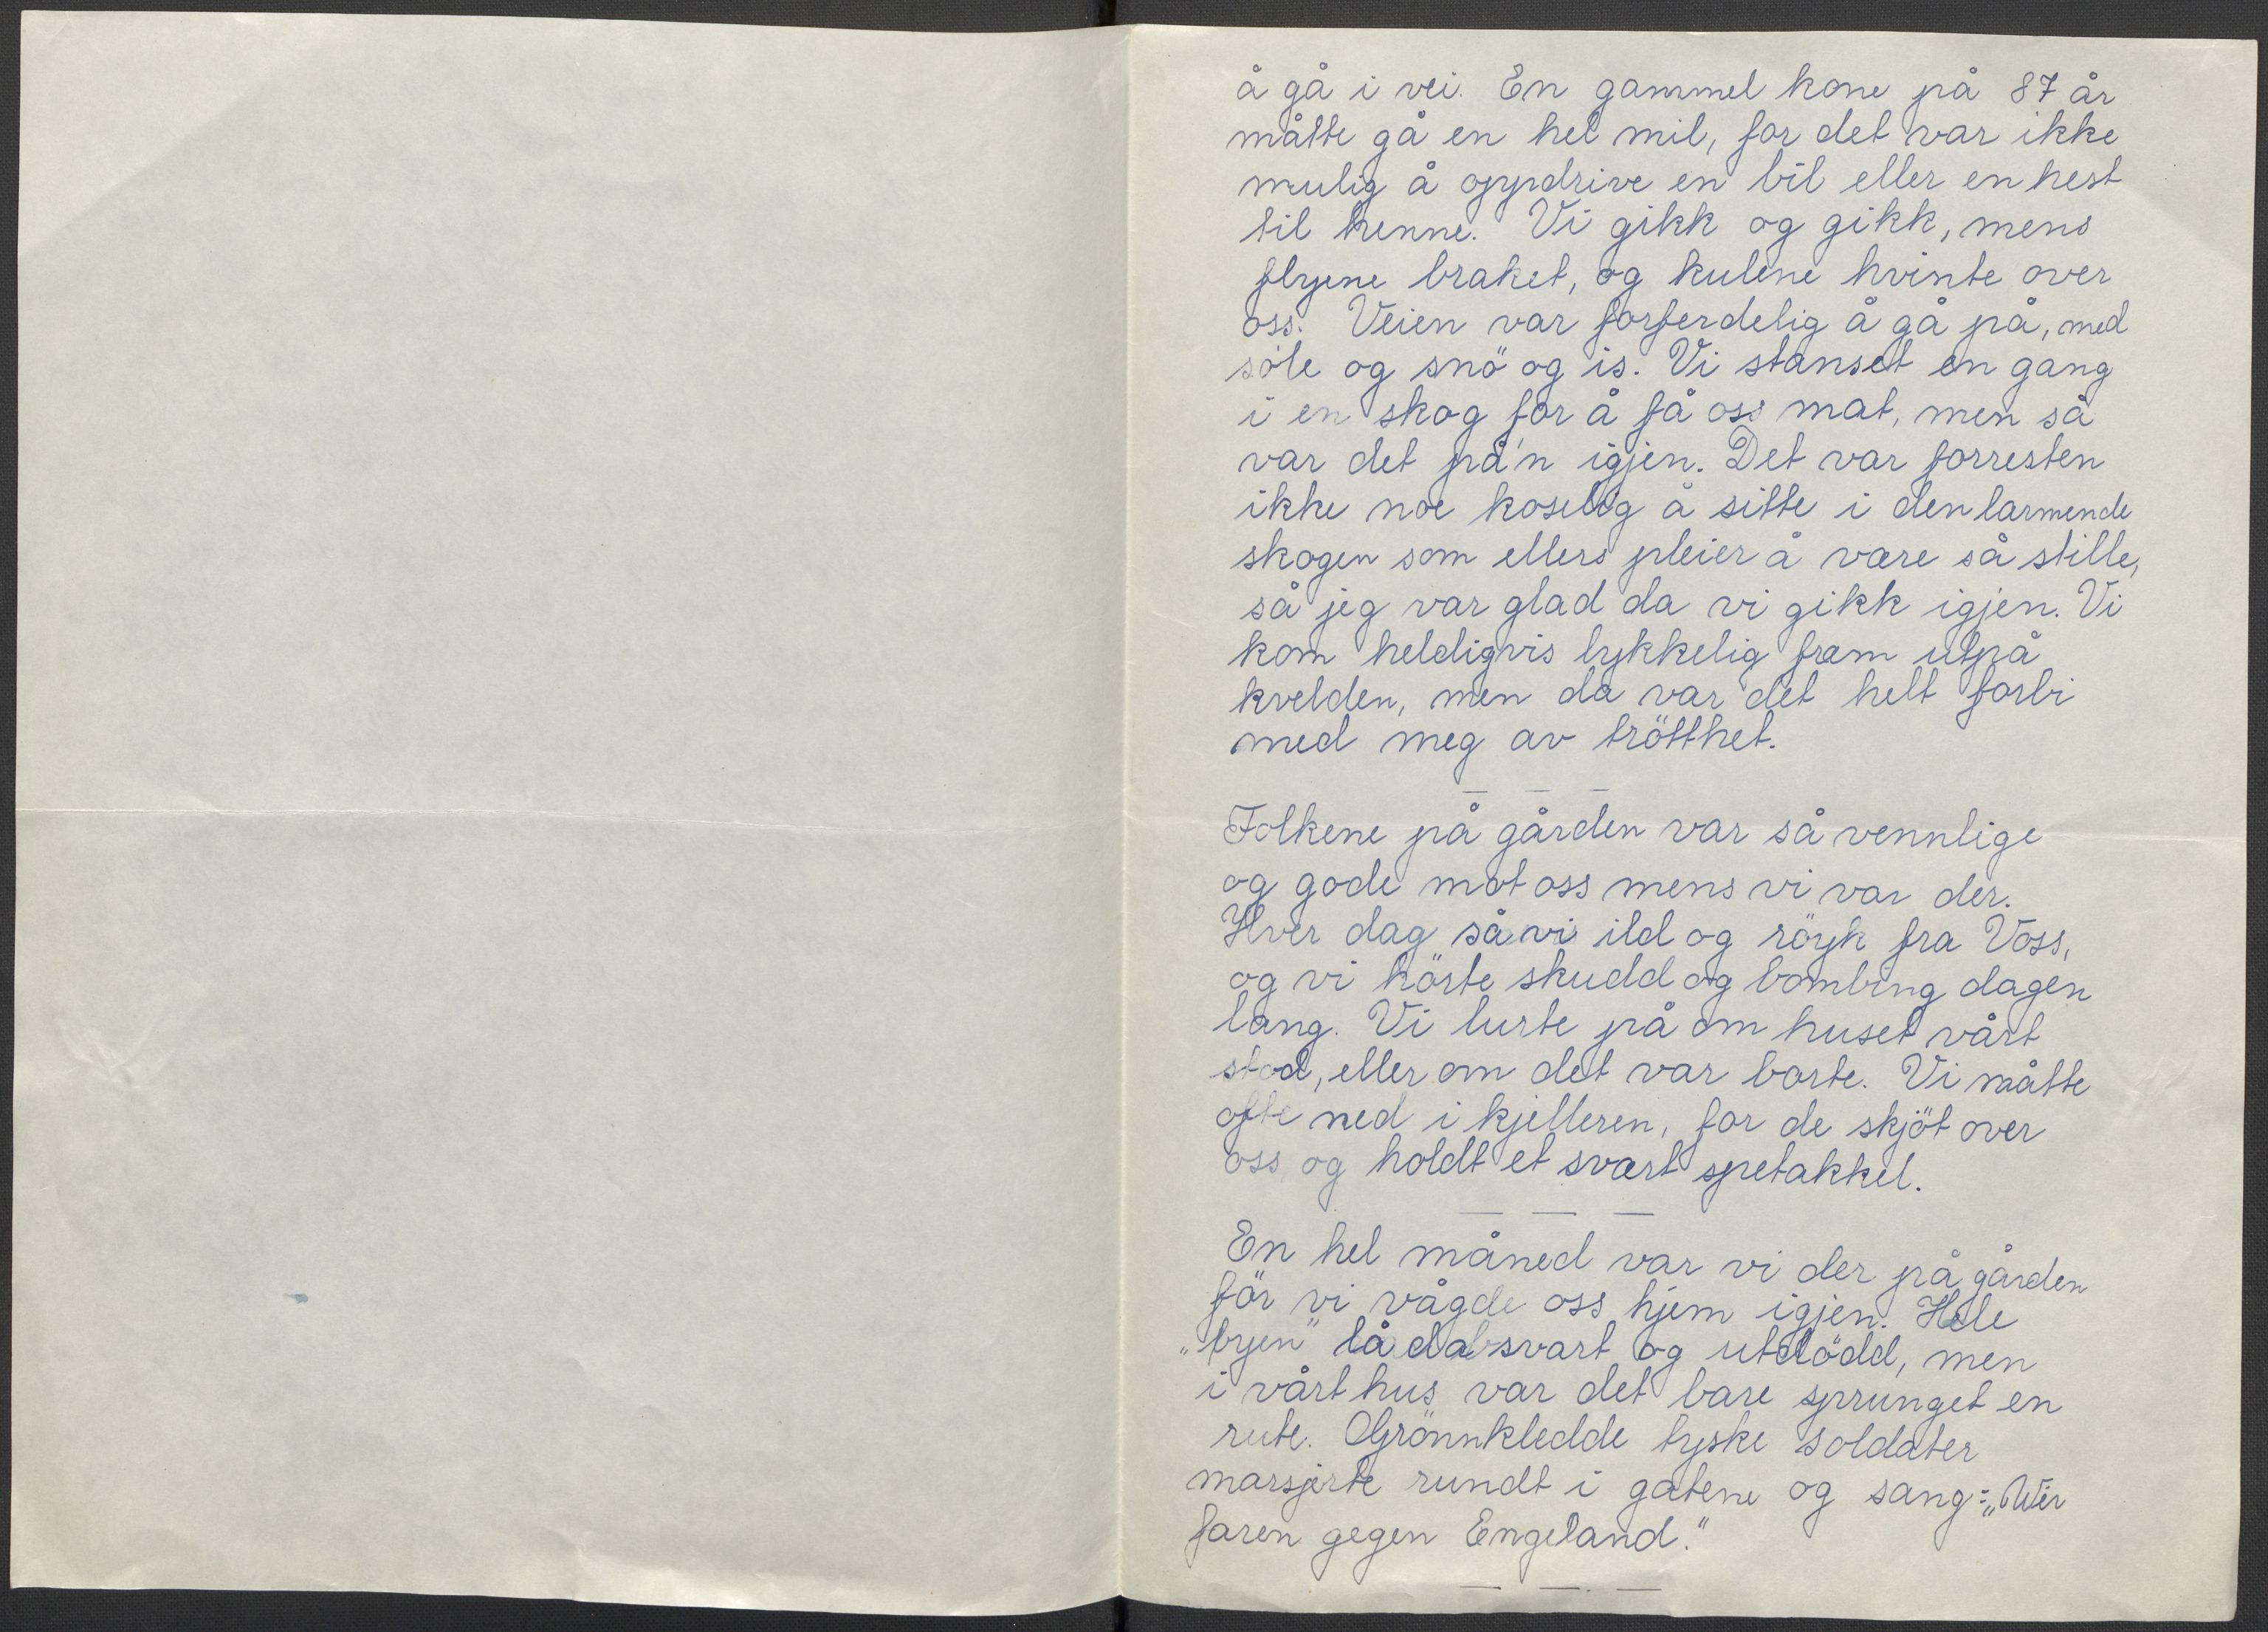 å gå i vei. En gammel kone på 87 år
måtte gå en hel mil, for det var ikke
mulig å oppdrive en bil eller en hest
til henne. Vi gikk og gikk, mens
flyene braket, og kulene hvinte over
oss. Veien var forferdelig å gå på, med
söle og snö og is. Vi stanset en gang
i en skog for å få oss mat, men så
var det på'n igjen. Det var forresten
ikke noe koselig å sitte i den larmende
skogen som ellers pleier å være så stille,
så jeg var glad da vi gikk igjen. Vi
kom heldigvis lykkelig fram utpå
kvelden, men da var det helt forbi
med meg av trötthet.
— — —
Folkene på gården var så vennlige
og gode mot oss mens vi var der.
Hver dag så vi ild og röyk fra Voss,
og vi hörte skudd og bombing dagen
lang. Vi lurte på om huset vårt
stod, eller om det var borte. Vi måtte
ofte ned i kjelleren, for de skjöt over
oss og holdt et svært spetakkel.
— — —
En hel måned var vi der på gården
för vi vågde oss hjem igjen. Hele
„byen" lå da svart og utdödd, men
i vårt hus var det bare sprunget en
rute. Grönnkledde tyske soldater
marsjerte rundt i gatene og sang: „Wir
faren gegen Engeland."
— — —